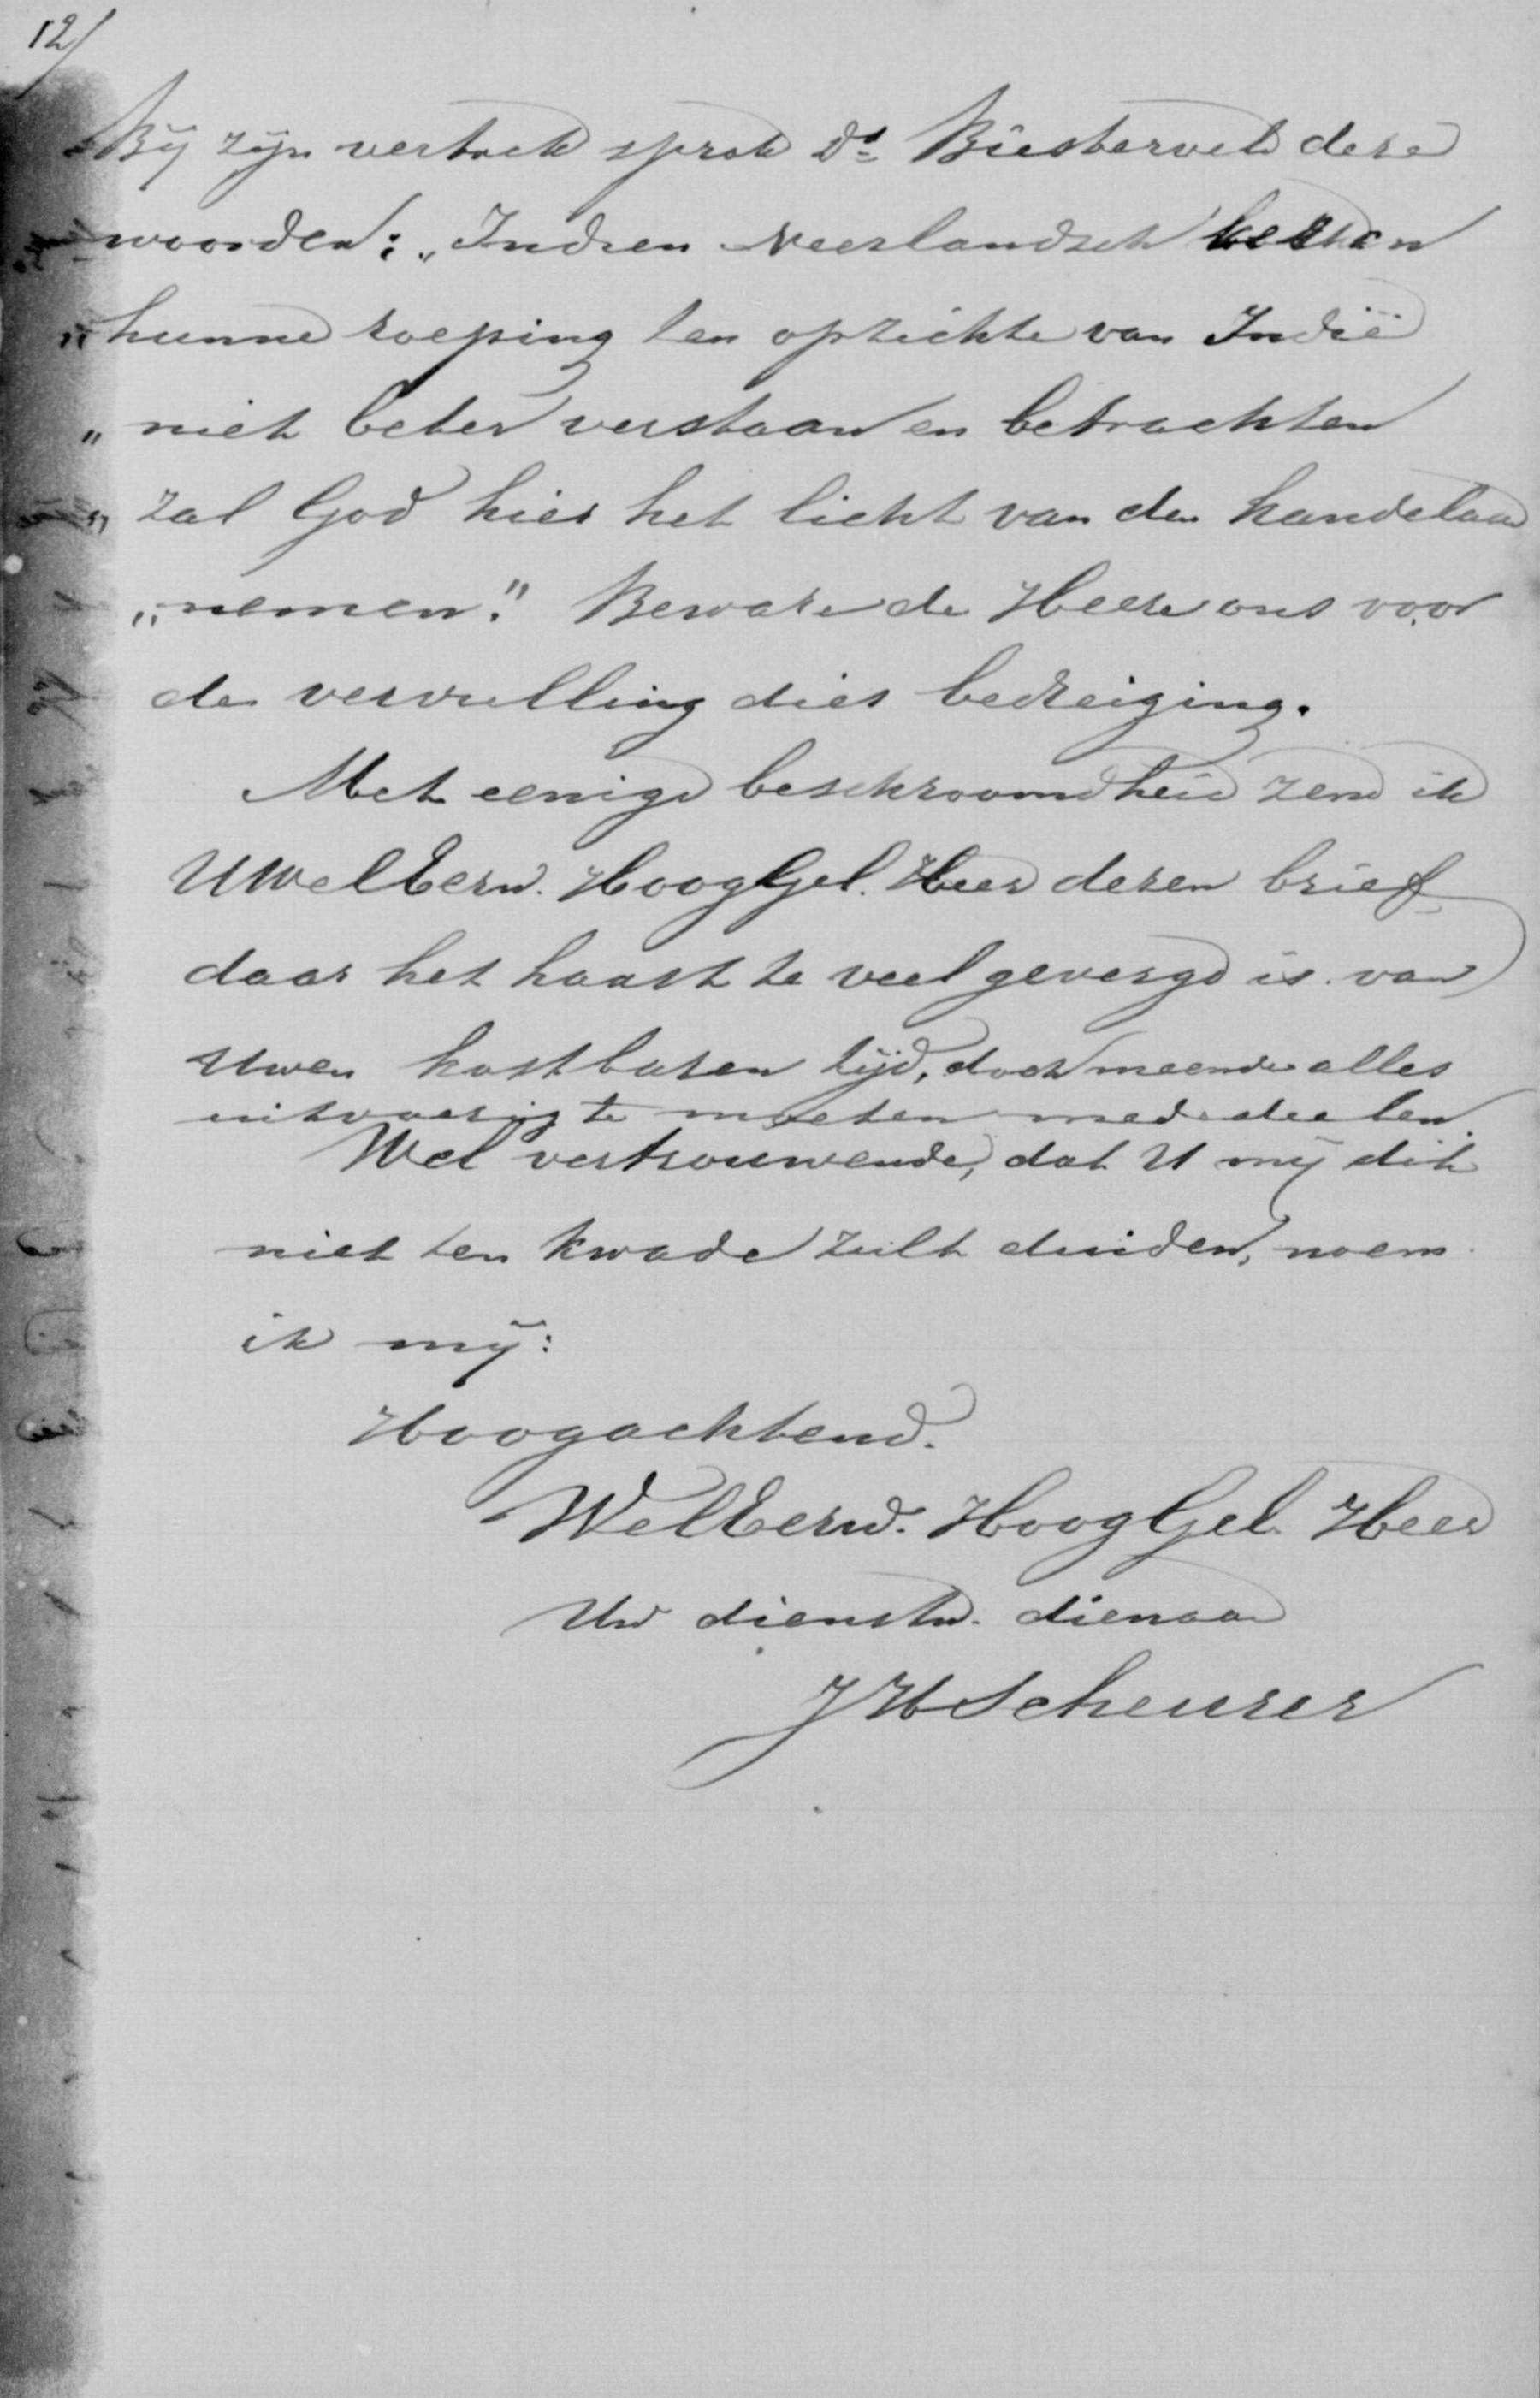 12/
Bij zijn vertrek sprak Ds Biesterveld deze
woorden: „Indien Neerlandsch kerken
„hunne roeping ten opzichte van Indië
„niet beter verstaan en betrachten
„zal God hier het licht van den kandelaar
„nemen." Beware de Heere ons voor
de vervulling dier bedreiging.
Met eenige beschroomdheid zend ik
UWelEerw. HoogGel. Heer dezen brief,
daar het haast te veel gevergd is van
Uwen kostbaren tijd, doch meende alles
uitvoerig te moeten mededeelen.
Wel vertrouwende, dat U mij dit
niet ten kwade zult duiden, noem
ik mij:
Hoogachtend.
WelEerw. HoogGel. Heer
Uw dienstw. dienaar
JHScheurer